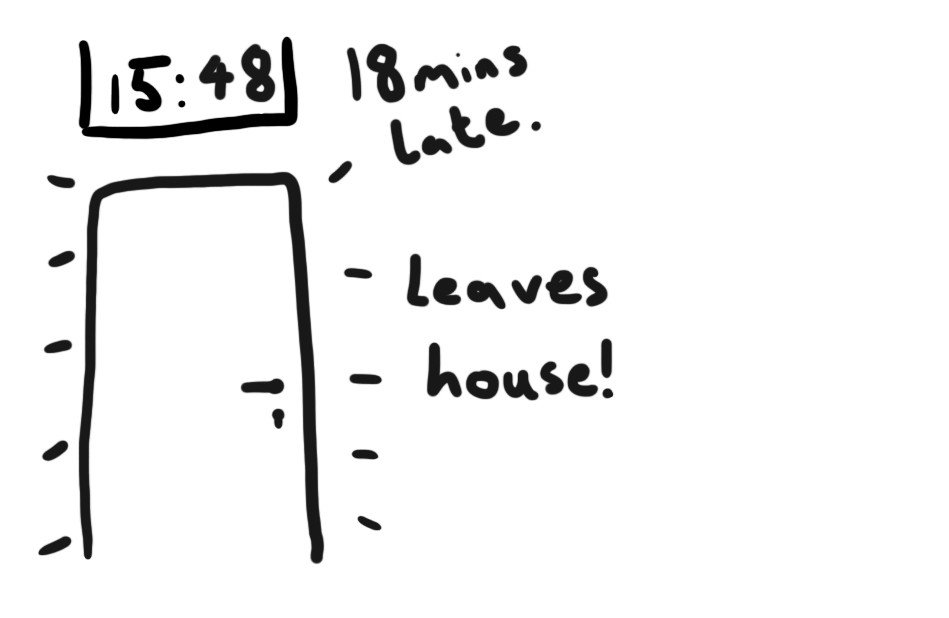 15:48
18mins
late.
Leaves
house!